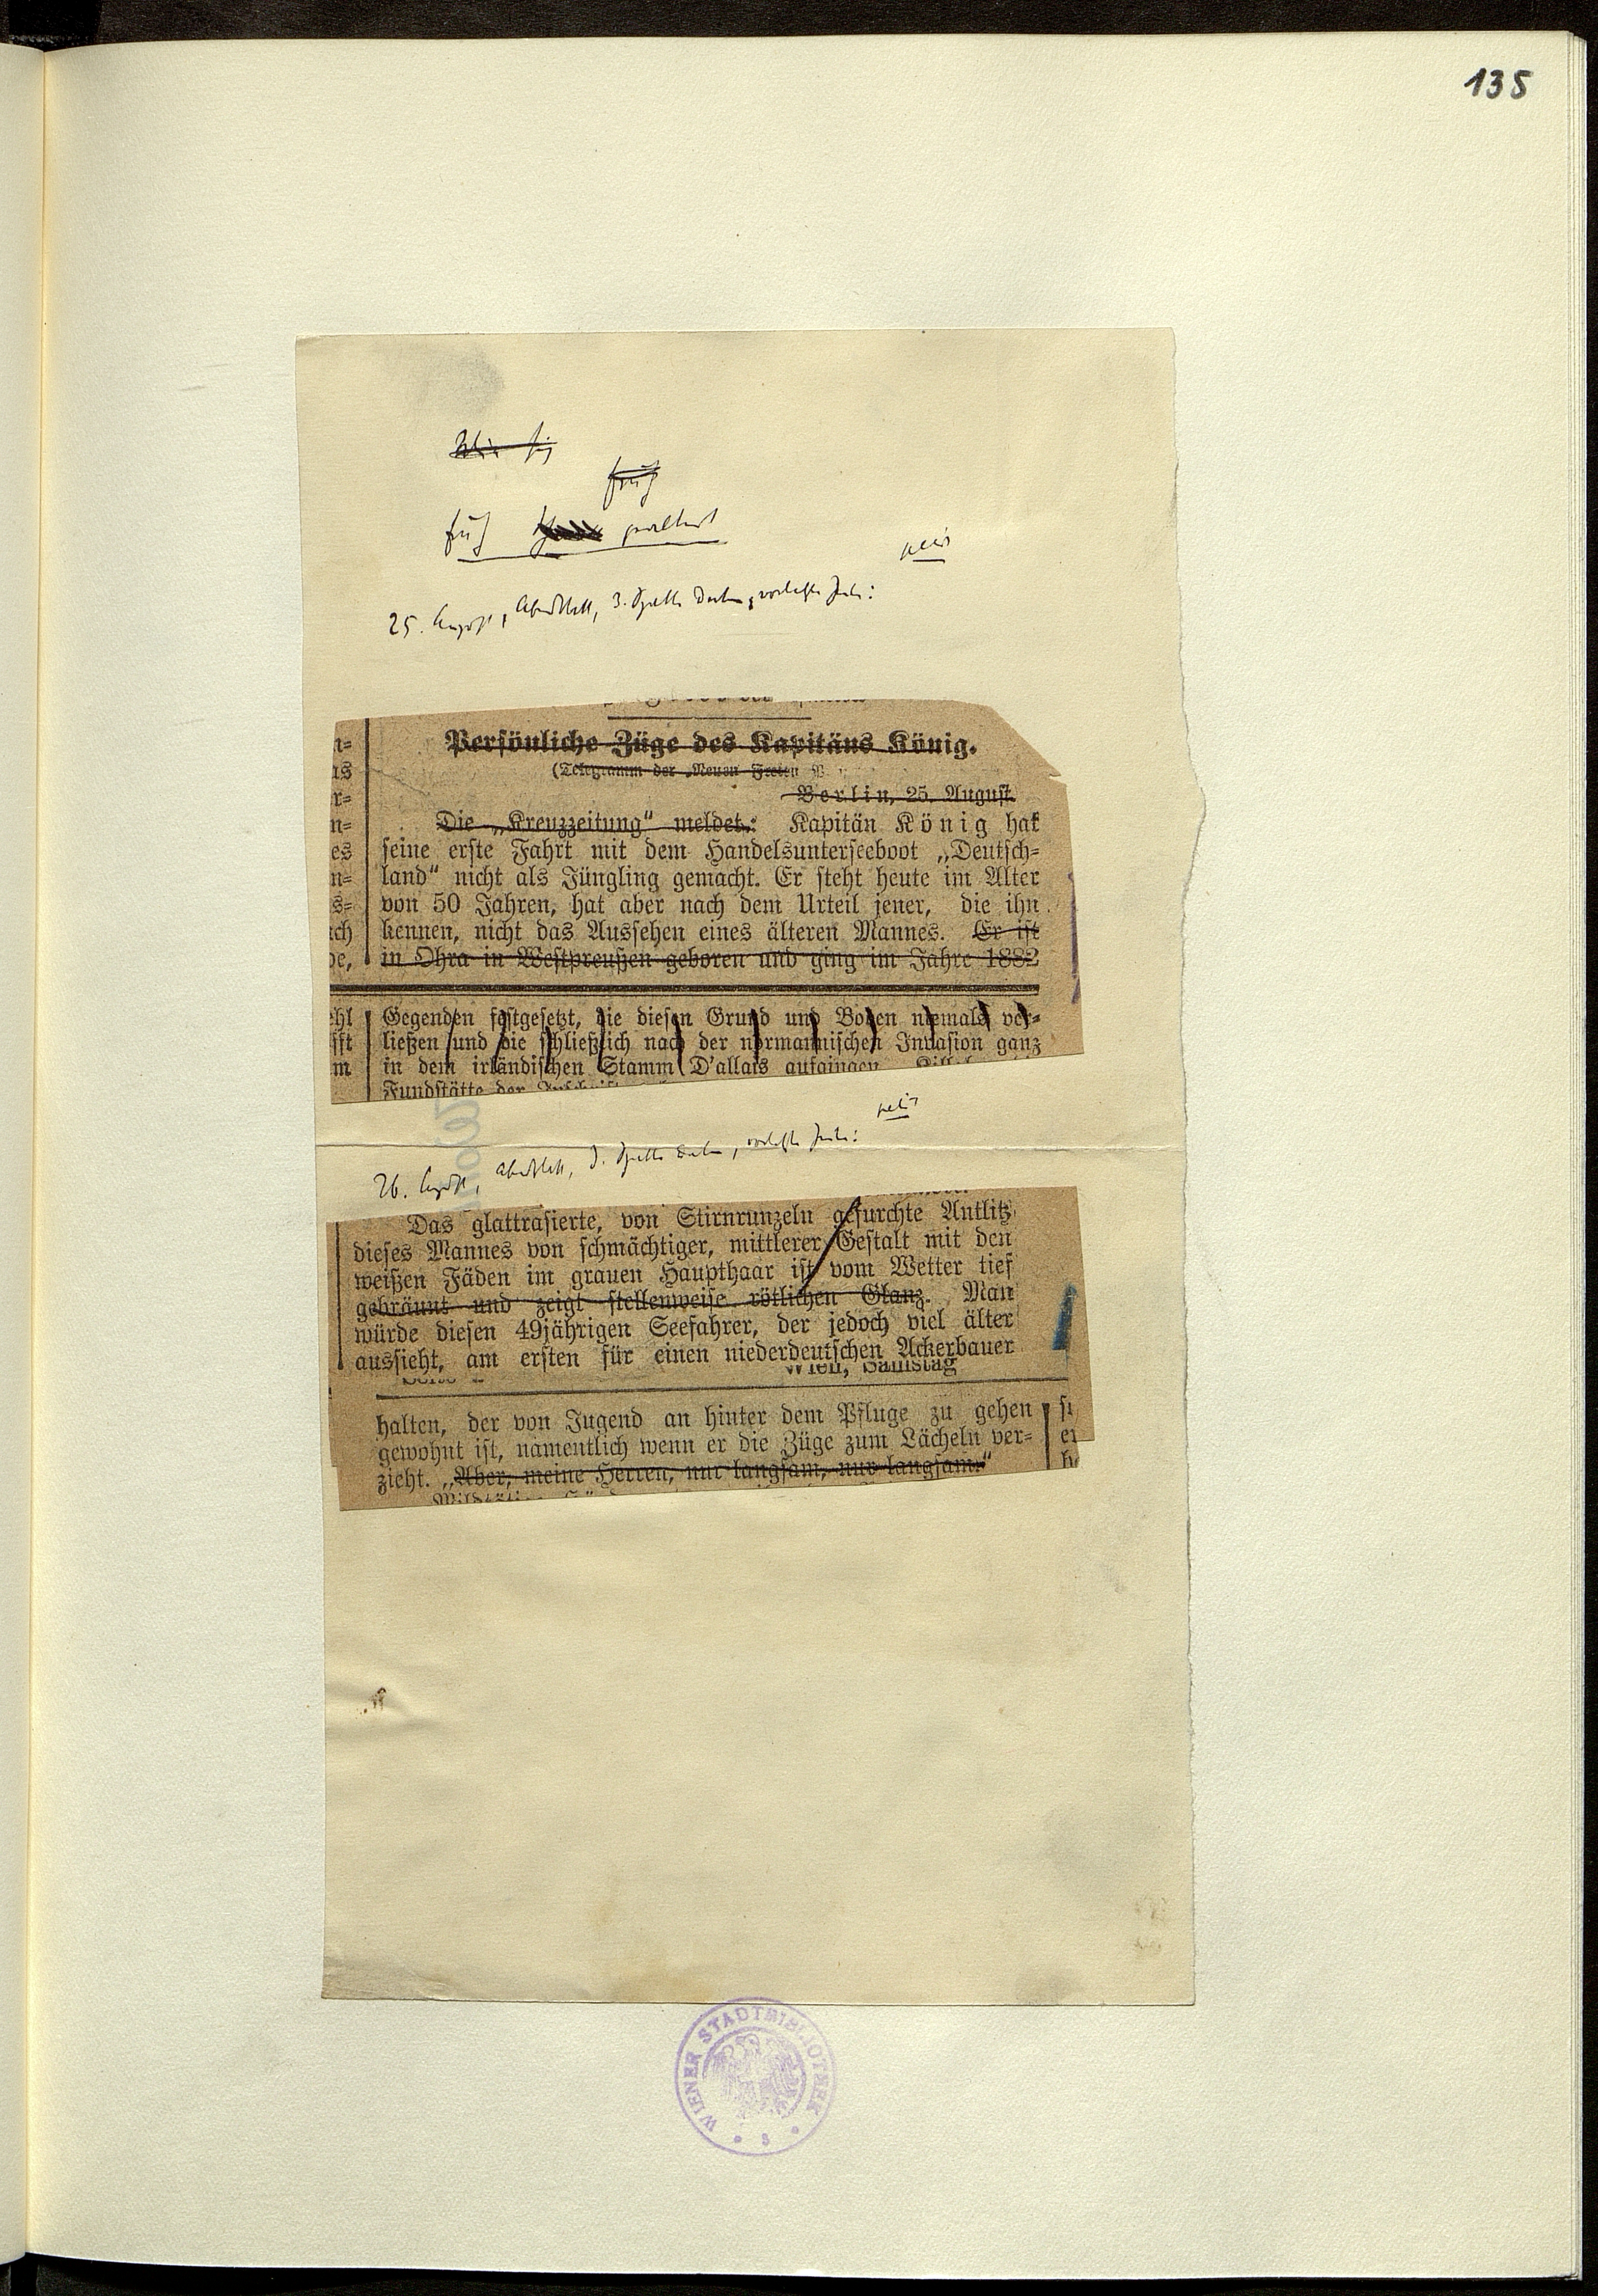 135
25. August, Abendblatt, 3. Spalte
Persönliche Züge des Kapitäns König.
(Telegramm der „Neuen Freien
Berlin, 25. August.
n=
as
r=
n=
es
n=
s=
ch
be,
Die „Kreuzzeitung“ meldet: Kapitän König hat
seine erste Fahrt mit dem Handelsunterseeboot „Deutsch=
land“ nicht als Jüngling gemacht. Er steht heute im Alter
von 50 Jahren, hat aber nach dem Urteil jener, die ihn
kennen, nicht das Aussehen eines älteren Mannes. Er ist
in Ohra in Westpreußen geboren und ging im Jahre 1882
ehl
fft
m
Gegenden festgesetzt, die diesen Grund und Boden niemals ver=
ließen und die schließlich nach der normannischen Invasion ganz
in dem irländischen Stamm D'allais aufgingen
Fundstätte der
26. August, Abendblatt,
Das glattrasierte, von Stirnrunzeln gefurchte Antlitz
dieses Mannes von schmächtiger, mittlerer Gestalt mit den
weißen Fäden im grauen Haupthaar ist vom Wetter tief
gebräunt und zeigt stellenweise rötlichen Glanz. Man
würde diesen 49jährigen Seefahrer, der jedoch viel älter
aussieht, am ersten für einen niederdeutschen Ackerbauer
Wien, Samstag
halten, der von Jugend an hinter dem Pfluge zu gehen
gewohnt ist, namentlich wenn er die Züge zum Lächeln ver=
zieht. „Aber, meine Herren, nur langsam, nur langsam.“
WIENER STADTBIBLIOTHEK